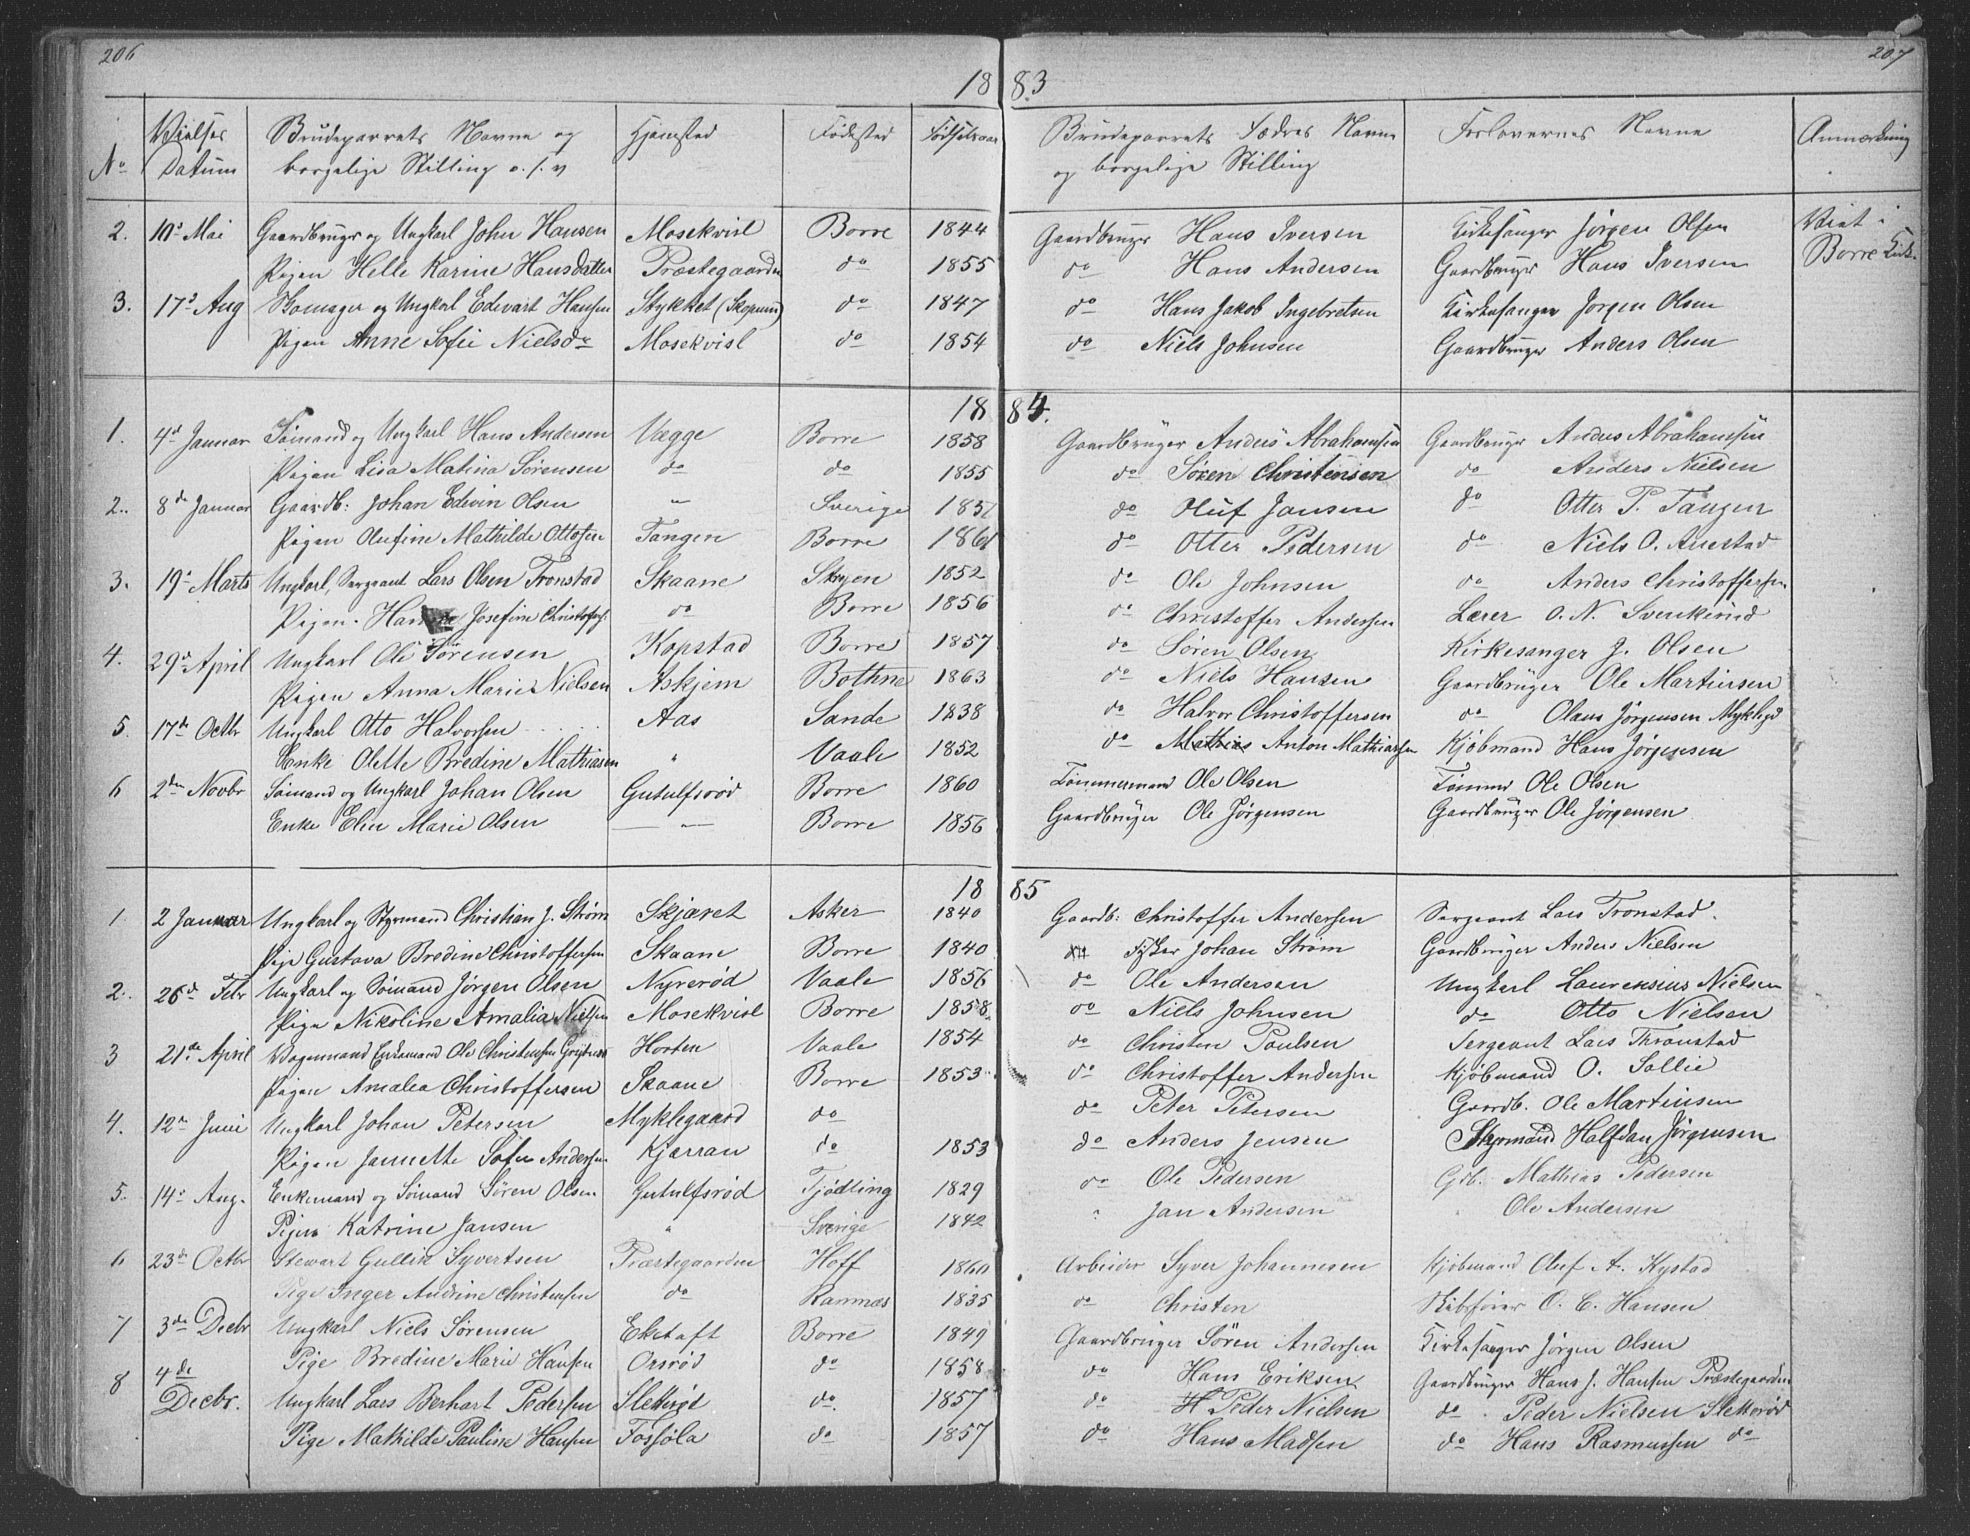 206
207
1883
No Vielses Datum Brudeparrets Navne og borgelige Stilling o.s.v Hjemsted Fødested Fødselsaar Brudeparrets Fædres Navne og borgelige Stilling Forlovernes Navne Anmærkning
2. 10d Mai Gaardbruger og Ungkarl John Hansen Mosekvisl Borre 1844 Gaardbruger Hans Iversen Kirkesanger Jørgen Olsen Viet i
Pigen Helle Karine Hansdatter Præstegaarden do 1855 do Hans Andersen Gaardbruger Hans Iversen Borre Kirk.
3. 17d Aug og Ungkarl Edevart Hansen Stykket (Skopum) do 1847 do Hans Jakob Ingebretsen Kirkesanger Jørgen Olsen
Pigen Anne Sofie Nielsdr Mosekvisl do 1854 do Niels Johnsen Gaardbruger Anders Olsen
1884.
1. 4d Januar Sømand og Ungkarl Hans Andersen Vegge Borre 1858 Gaardbruger Anders Abrahamsen Gaardbruger Anders Abrahamsen
Pigen Lisa Matina Sørensen do do 1855 do Søren Christensen do Anders Nielsen
2.. 8de Januar Gaardb: Johan Edvin Olsen " Sverige 1857 do Oluf Jansen do Otter P. Tangen
Pigen Olufine Mathilde Ottosen Tangen Borre 1861 do Otter Pedersen do Niels O. Auestad
3. 19d Marts Ungkarl, Sergeant Lars Olsen Tronstad Skaane Skoyen 1852 do Ole Johnsen do Anders Christoffersen
Pigen. Josefine Christoffers. do Borre 1856 do Christoffer Andersen Lærer O. N. Svenkerud
4. 29d April Ungkarl Ole Sørensen Kopstad Borre 1857 do Søren Olsen Kirkesanger J. Olsen
Pigen Anna Marie Nielsen Askjem Bothne 1863 do Niels Hansen Gaardbrüger Ole Martinsen
5. 17de Octbr Ungkarl Otto Halvorsen Aas Sande 1838 do Halvor Christoffersen do Olaus Jørgensen Myklegd
Enke Olette Bredine Mathiasen " Vaale 1852 do Mathias Anton Mathiassen Kjøbmand Hans Jørgensen
6 2den Novbr Sømand og Ungkarl Johan Olsen Gutulfsrød Borre 1860 Tømmermand Ole Olsen Tømmd Ole Olsen
Enke Elen Marie Olsen — " — Borre 1856 Gaardbrüger Ole Jørgensen Gaardbruger Ole Jørgensen
1885
1 2 Januar Ungkarl og Styrmand Christian J. Strøm Skjæret Asker 1840 Gaardb: Christoffer Andersen Sergeant Lars Tronstad.
Pige Gustava Bredine Christoffersen Skaane Borre 1840 Fisker Johan Strøm Gaardbruger Anders Nielsen
2. 26d Febr Ungkarl og Sømand Jørgen Olsen Nyrerød Vaale 1856 do Ole Andersen Ungkarl Laurensius Nielsen
Pige Nikoline Amalia Nielsen Mosekvisl Borre 1858. do Niels Johnsen do Otto Nielsen
3 21de April Vognmand Enkemand Ole Christensen Horten Vaale 1854 do Christen Poulsen Sergeant Lars Thronstad
Pigen Amalia Christoffersen Skaane Borre 1853 do Christoffer Andersen Kjøbmand O. Sollie
4. 12te Juni Ungkarl Johan Petersen Myklegaard do do Peter Petersen Gaardb. Ole Martinsen
Pigen Jannette Sofie Andersen Kjærran do 1853 do Anders Jensen Styrmand Halfdan Jørgensen
5. 14d Aug. Enkemand og Sømand Søren Olsen Gutulfsrød Tjødling 1829 do Ole Pedersen Gdb. Mathias Pedersen
Pigen Katrine Jansen " Sverige 1842 " Jan Andersen " Ole Andersen
6 23de Octbr Stewart Gullik Syvertsen Præstegaarden Hoff 1860 Arbeider Syver Johannesen Kjøbmand Oluf A. Kystad
Pige Inger Andrine Christensen do Ramnæs 1835 do Christen Skibsfører O. C. Hansen
7 3de Decbr Ungkarl Niels Sørensen Eketaft Borre 1849 Gaardbruger Søren Andersen Kirkesanger Jørgen Olsen
Pige Bredine Marie Hansen Orsrød do 1858 do Hans Eriksen Gaardbruger Hans J. Hansen Præstegaarden
8 4de Decbr. Ungkarl Lars Berhart Pedersen Sletterød do. 1857 do Peder Nielsen do. Peder Nielsen Sletterød
Pige Mathilde Pauline Hansen Fossøla do 1857 do Hans Madsen do Hans Rasmussen do